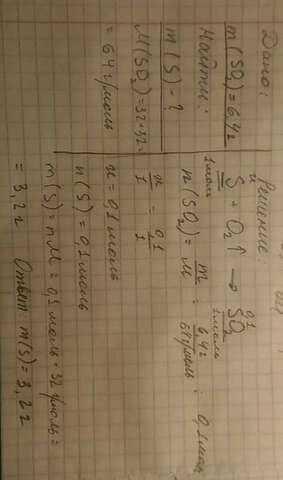 Дано:
m(SO₂)=6,4г
Найти:
m(S)-?
M(SO₂)=32+32=
=64г/моль
Решение
x 0,1
S + O₂↑ → SO₂
1моль 1моль
n(SO₂) = m/M = 6,4г/64г/моль = 0,1моль
x/1 = 0,1/1
x = 0,1моль
n(S) = 0,1моль
m(S) = n·M = 0,1моль · 32г/моль =
= 3,2г Ответ: m(S)=3,2г